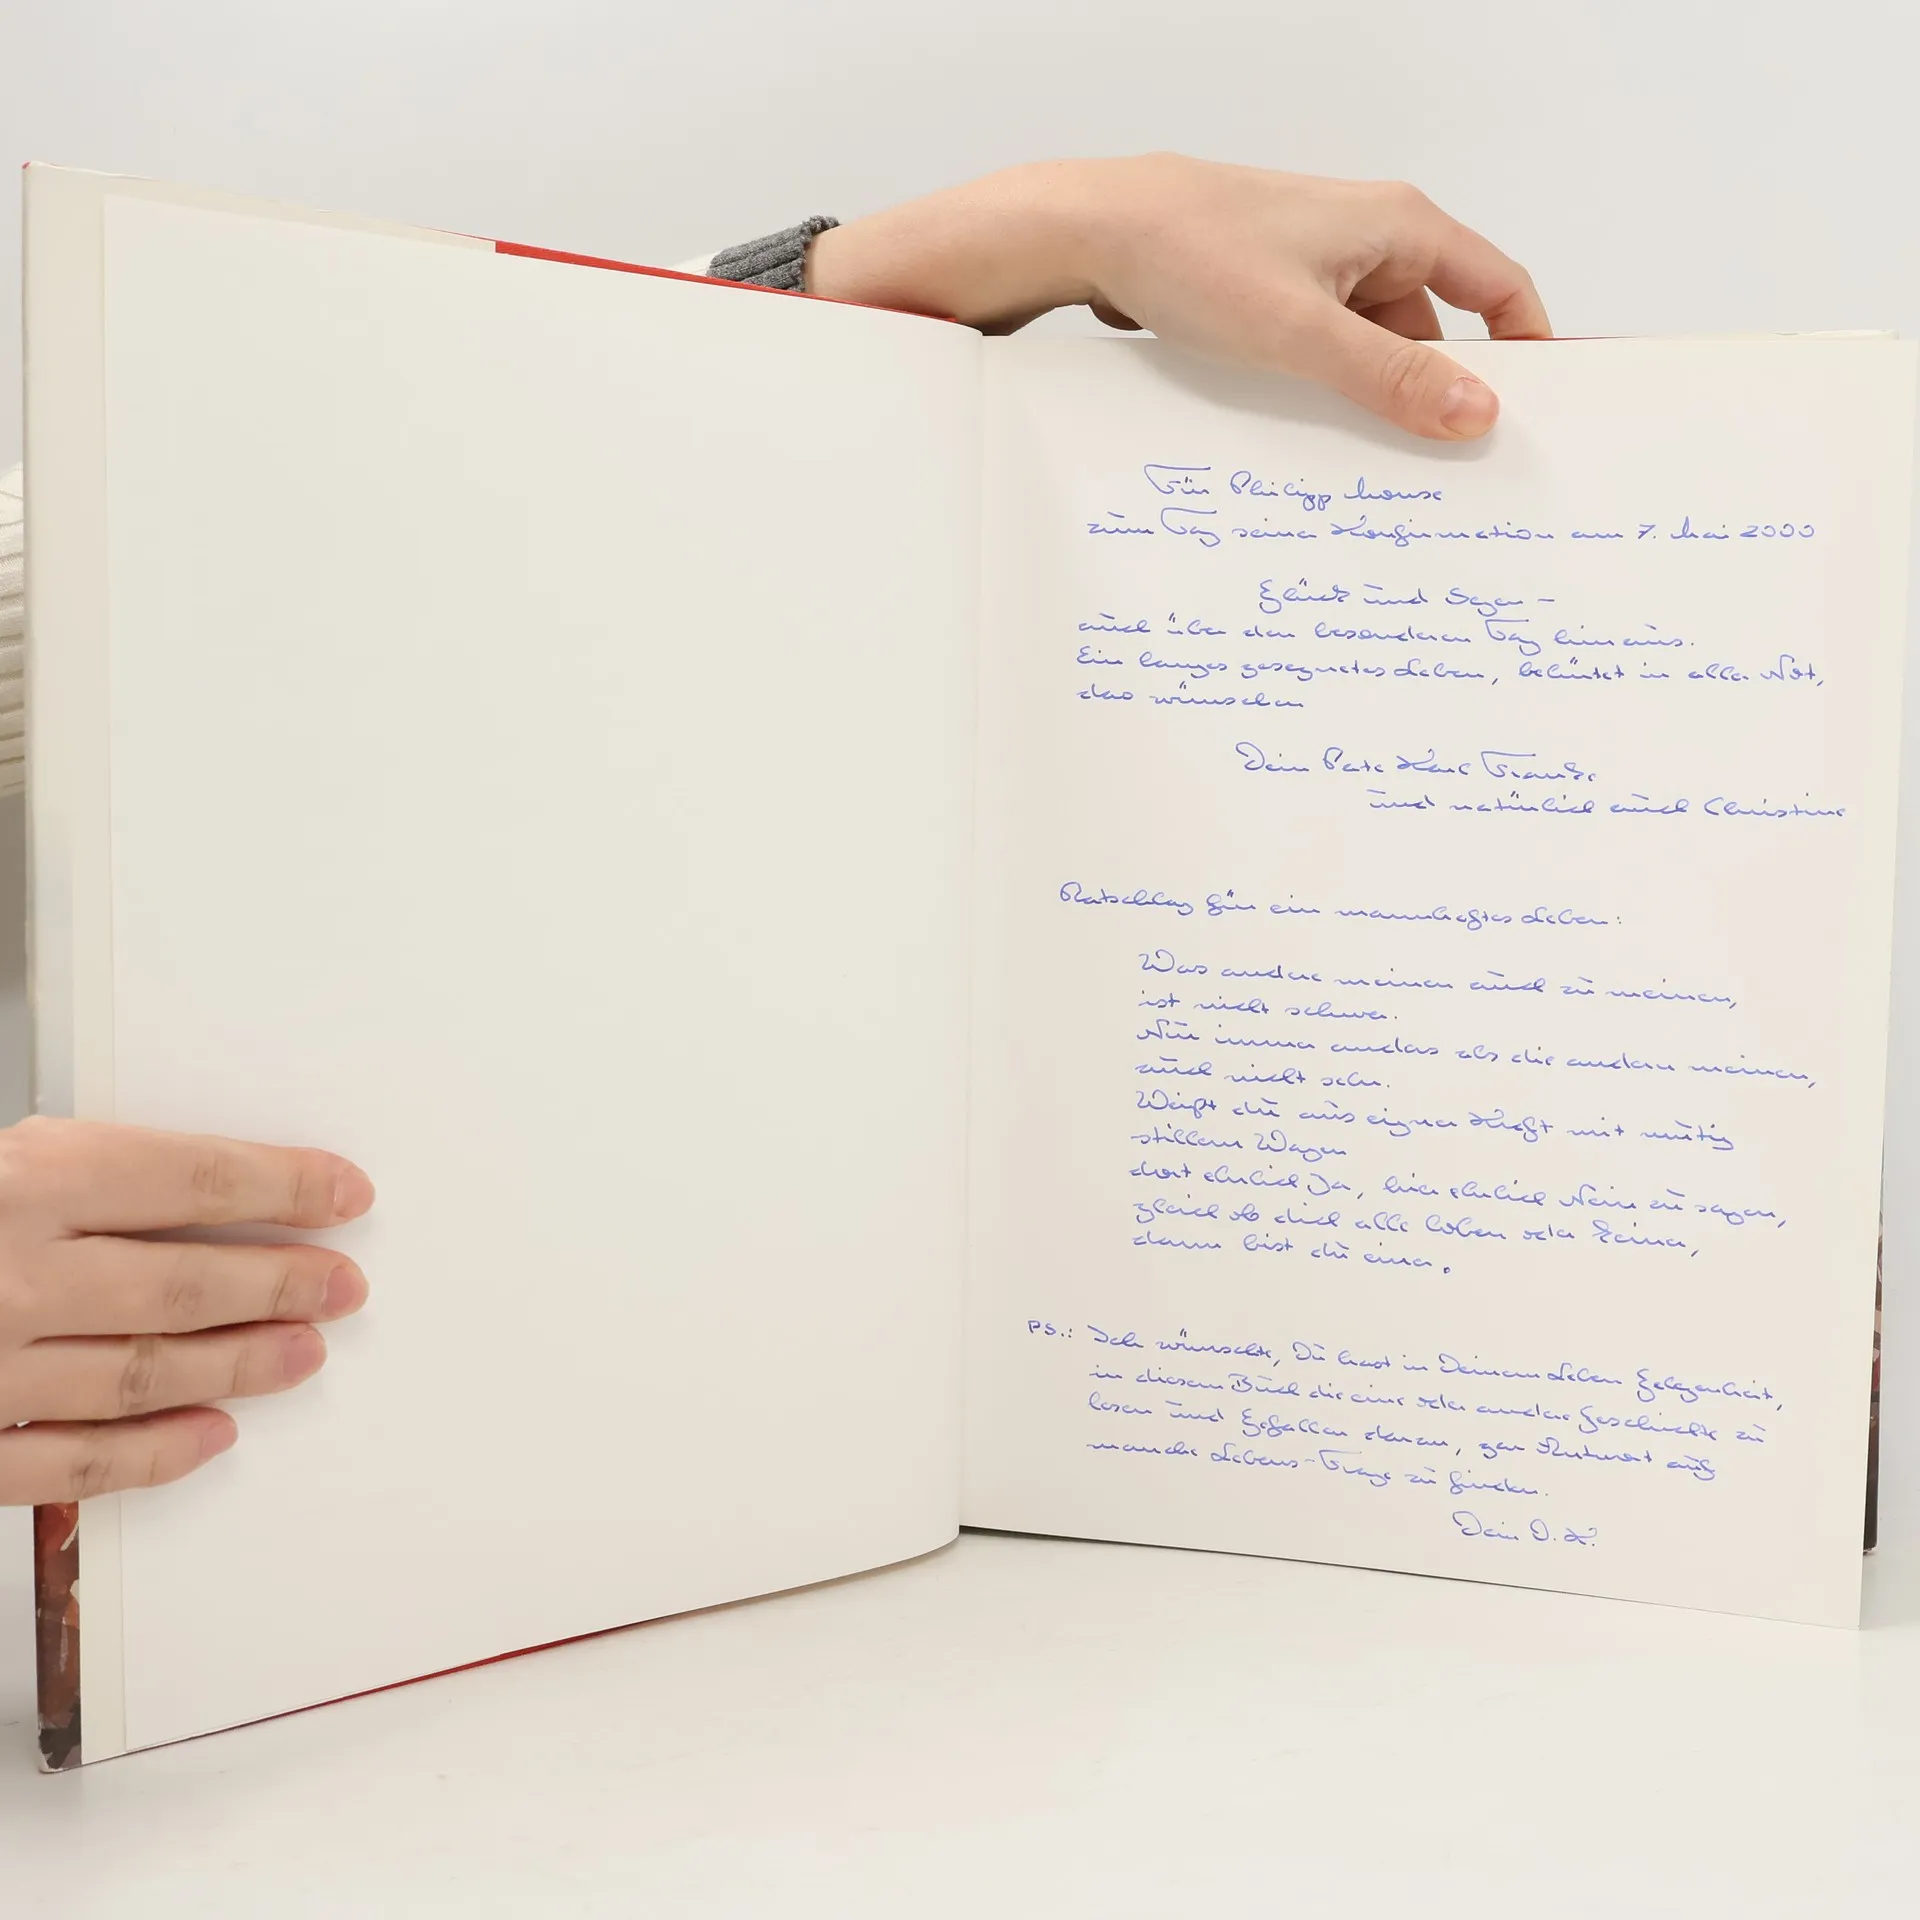 Für Philipp
zum Tag seiner Konfirmation am 7. Mai 2000
Glück und Segen –
auch über den besonderen Tag hinaus.
Ein langes gesegnetes Leben, behütet in aller Not,
das wünschen
Dein Pate Karl
und natürlich auch Christine
Ratschlag für ein mannhaftes Leben:
Was andere meinen auch zu meinen,
ist nicht schwer.
Nur immer anders als die andern meinen,
auch nicht sehr.
Weißt du aus eigner Kraft mit mutig
stillem Wagen
dort ehrlich Ja, hier ehrlich Nein zu sagen,
gleich ob dich alle loben oder keiner,
dann bist du einer.
PS.: Ich wünschte, Du hast in Deinem Leben Gelegenheit,
in diesem Buch die eine oder andere Geschichte zu
lesen und Gefallen daran, gar Antwort auf
manche Lebens-Frage zu finden.
Dein O. K.